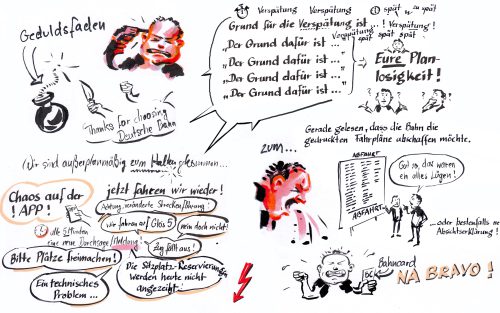 Geduldsfaden
Thanks for choosing
Deutsche Bahn
Verspätung Verspätung
spät spät
Grund für die Verspätung ist ...! Verspätung!
Verspätung spät spät spät
„Der Grund dafür ist ..."
„Der Grund dafür ist ..."
„Der Grund dafür ist ..."
„Der Grund dafür ist ..."
Eure Plan-
losigkeit!
Gerade gelesen, dass die Bahn die
gedruckten Fahrpläne abschaffen möchte.
Wir sind außerplanmäßig zum Halten gekommen...
zum...
ABFAHRT
ABFAHRT
Gut so, das waren
eh alles Lügen!
...oder bestenfalls ne
Absichtserklärung!
Chaos auf der
! APP!
jetzt fahren wir wieder!
Achtung, veränderte Streckenführung!
wir fahren auf Gleis 5
nein doch nicht!
alle 5 Minuten
eine neue Durchsage/Meldung!
Zug fällt aus!
Bitte Plätze freimachen!
Die Sitzplatz-Reservierungen
werden heute nicht
angezeigt...
Ein technisches
Problem...
Bahncard
BC
NA BRAVO!